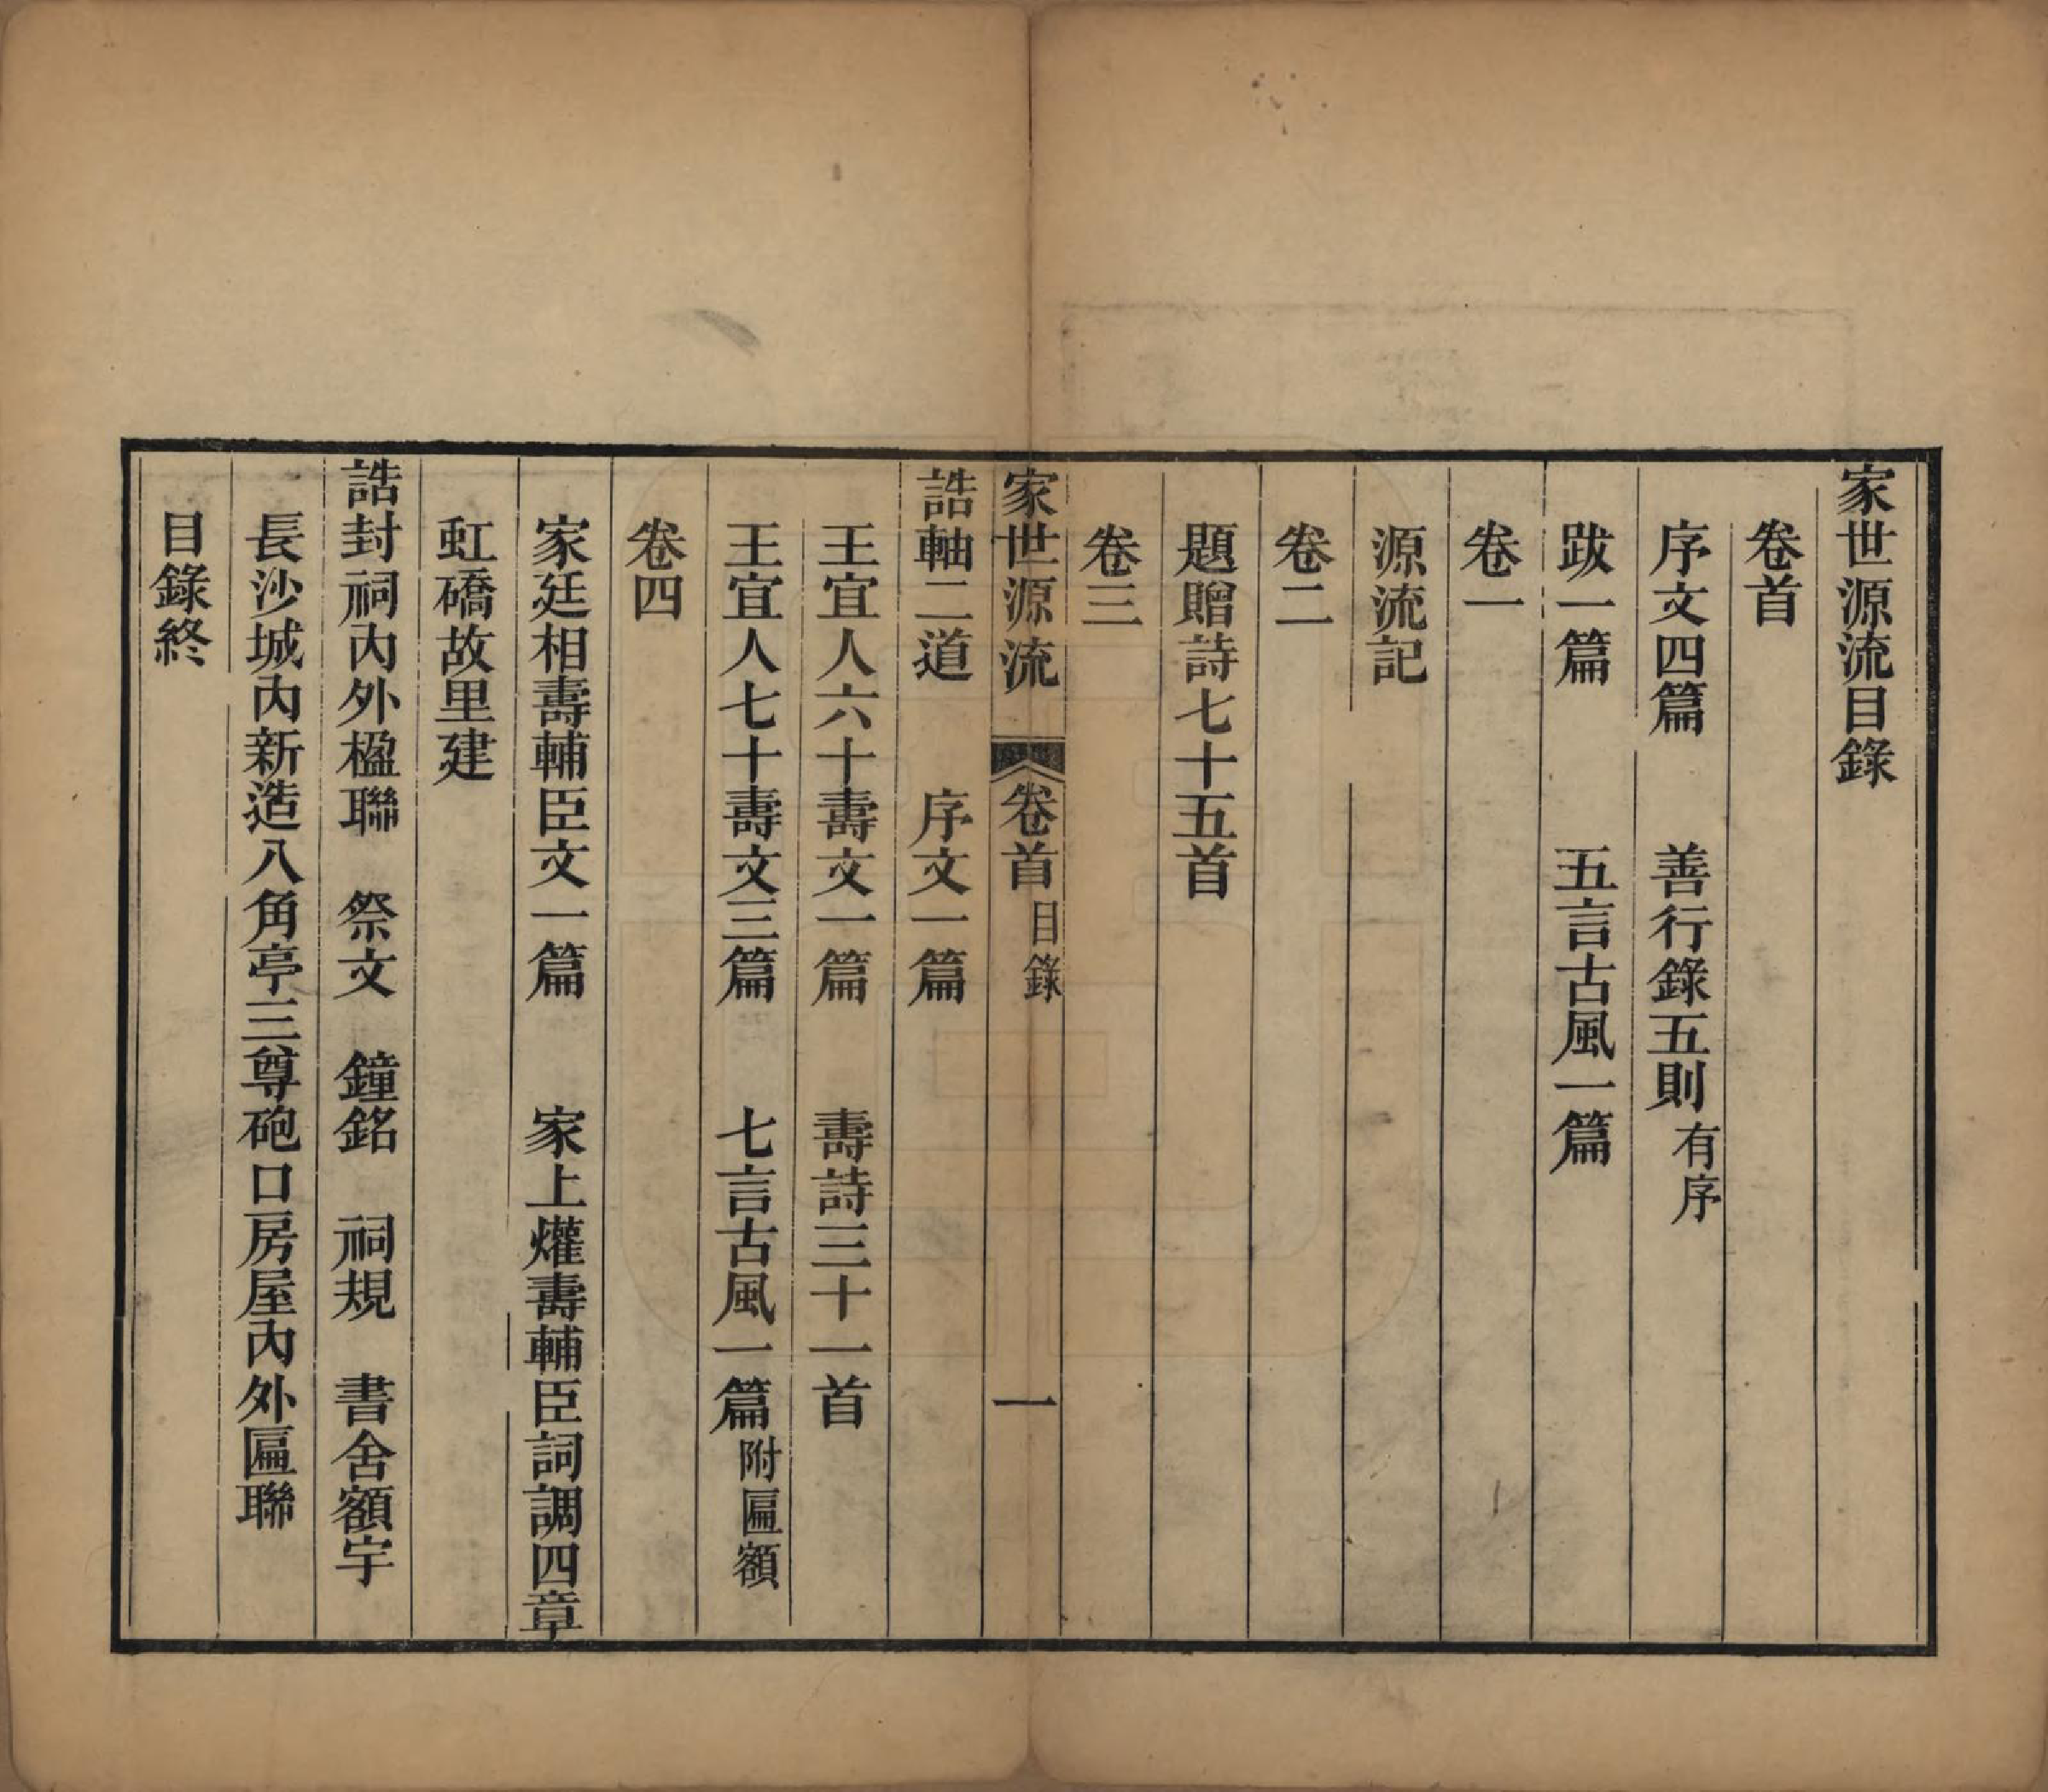 家世源流目錄
卷首
序文四篇　善行錄五則有序
跋一篇　五言古風一篇
卷一
源流記
卷二
題贈詩七十五首
卷三
家世源流　卷首　目錄　一
誥軸二道　序文一篇
王宜人六十壽文一篇　壽詩三十一首
王宜人七十壽文三篇　七言古風一篇附匾額
卷四
家廷相壽輔臣文一篇　家上爟壽輔臣詞調四章
虹礄故里建
誥封祠內外楹聯　祭文　鐘銘　祠規　書舍額字
長沙城內新造八角亭三尊砲口房屋內外匾聯
目錄終